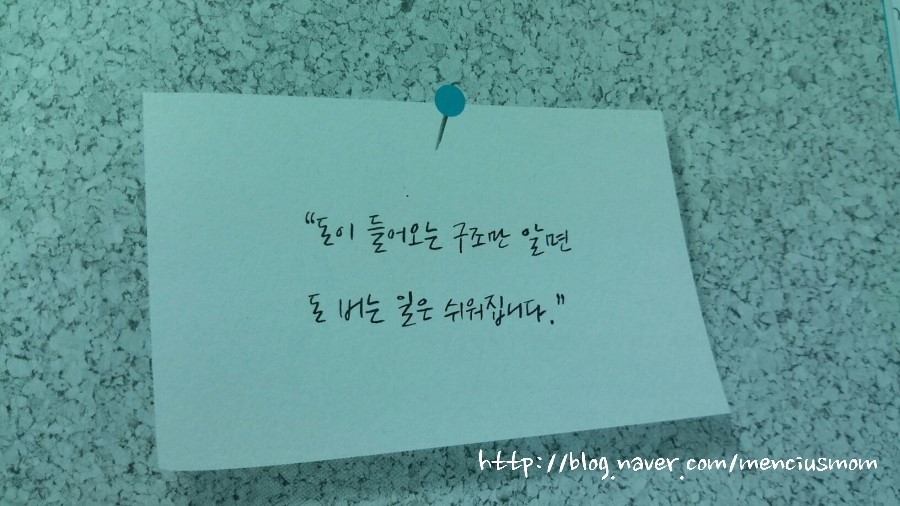 “돈이 들어오는 구조만 알면
돈 버는 일은 쉬워집니다.”
http://blog.naver.com/menciusmom